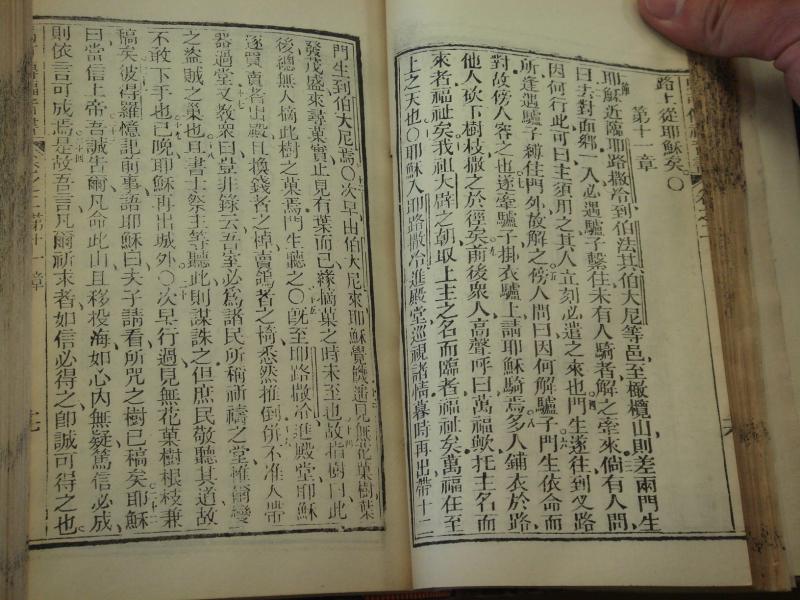 路上從耶穌矣〇
第十一章
耶穌近臨耶路撒冷到伯法其伯大尼等邑至橄欖山則差兩門生
曰去對面鄉一入必遇驢子繫住未有人騎者解之牽來倘有人問
因何行此可曰主須用之其人立刻必遣之來也門生遂往到叉路
所逢遇驢子縛住門外故解之傍人問曰因何解驢子門生依命而
對故傍人容之也遂牽驢子掛衣驢上請耶穌騎焉多人鋪衣於路
他人砍下樹枝撒之於徑矣前後衆人高聲呼曰萬福歟托主名而
來者福祉矣我祖大辟之朝取上主之名而臨者福祉矣萬福在至
上之天也〇耶穌入耶路撒冷進殿堂巡視諸情暮時再出帶十二
門生到伯大尼焉〇次早由伯大尼來耶穌覺饑遙見無花菓樹葉
發茂盛來尋菓實止見有葉而已緣摘菓之時未至也故指樹曰此
後總無人摘此樹之菓焉門生聽之〇旣至耶路撒冷進殿堂耶穌
逐買賣者出殿且換錢者之棹賣鴿者之椅悉然推倒併不准人帶
器過堂又教衆曰豈非錄云吾室必爲諸民所稱祈禱之堂惟爾變
之盜賊之巢也且書士祭主等聽此則謀誅之但庶民敬聽其道故
不敢下手也已晚耶穌再出城外〇次早行過見無花菓樹根枝兼
稿矣彼得羅憶記前事語耶穌曰夫子請看所咒之樹已稿矣耶穌
曰當信上帝吾誠告爾凡命此山且移投海如心內無疑篤信必成
則依言可成焉是故吾言凡爾祈求者如信必得之卽誠可得之也
第十一章